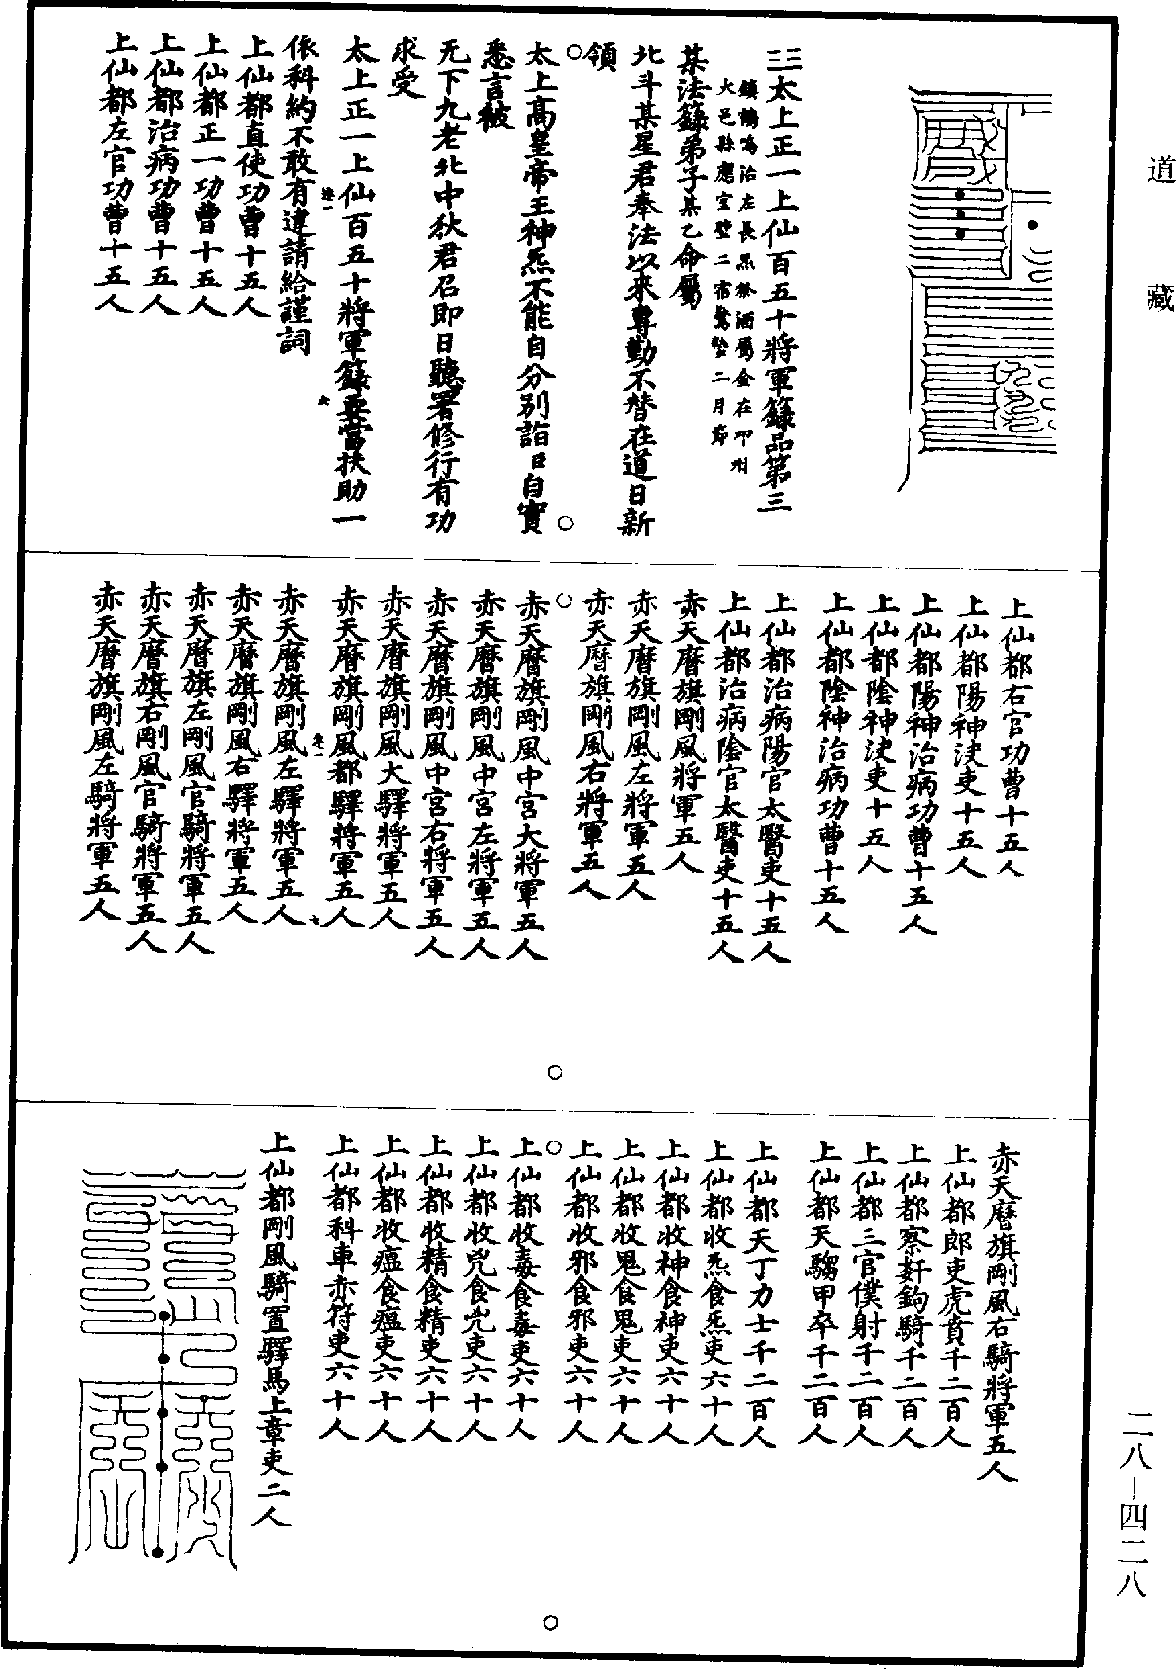 道藏
三太上正一上仙百五十將軍籙品第三
鎮鶴鳴治左長炁祭酒屬金在卭州
大邑縣應室壁二宿驚蟄二月節
某法籙弟子某乙命屬
北斗某星君奉法以來專勤不替在道日新
領
太上高皇帝王神炁不能自分別詣曰自實
悉言被
无下九老北中秋君召即日聽署修行有功
求受
太上正一上仙百五十將軍籙要當扶助一
依科約不敢有違請給謹詞
上仙都直使功曹十五人
上仙都正一功曹十五人
上仙都治病功曹十五人
上仙都左官功曹十五人
上仙都右官功曹十五人
上仙都陽神決吏十五人
上仙都陽神治病功曹十五人
上仙都陰神決吏十五人
上仙都陰神治病功曹十五人
上仙都治病陽官太醫吏十五人
上仙都治病陰官太醫吏十五人
赤天曆旗剛風將軍五人
赤天曆旗剛風左將軍五人
赤天曆旗剛風右將軍五人
赤天曆旗剛風中宮大將軍五人
赤天曆旗剛風中宮左將軍五人
赤天曆旗剛風中宮右將軍五人
赤天曆旗剛風大驛將軍五人
赤天曆旗剛風都驛將軍五人
赤天曆旗剛風左驛將軍五人
赤天曆旗剛風右驛將軍五人
赤天曆旗左剛風官騎將軍五人
赤天曆旗右剛風官騎將軍五人
赤天曆旗剛風左騎將軍五人
赤天曆旗剛風右騎將軍五人
上仙都郎吏虎賁千二百人
上仙都察奸鉤騎千二百人
上仙都三官僕射千二百人
上仙都天騶甲卒千二百人
上仙都天丁力士千二百人
上仙都收炁食炁吏六十人
上仙都收神食神吏六十人
上仙都收鬼食鬼吏六十人
上仙都收邪食邪吏六十人
上仙都收毒食毒吏六十人
上仙都收兇食兇吏六十人
上仙都收精食精吏六十人
上仙都收瘟食瘟吏六十人
上仙都科車赤符吏六十人
上仙都剛風騎置驛馬上章吏二人
二八—四二八